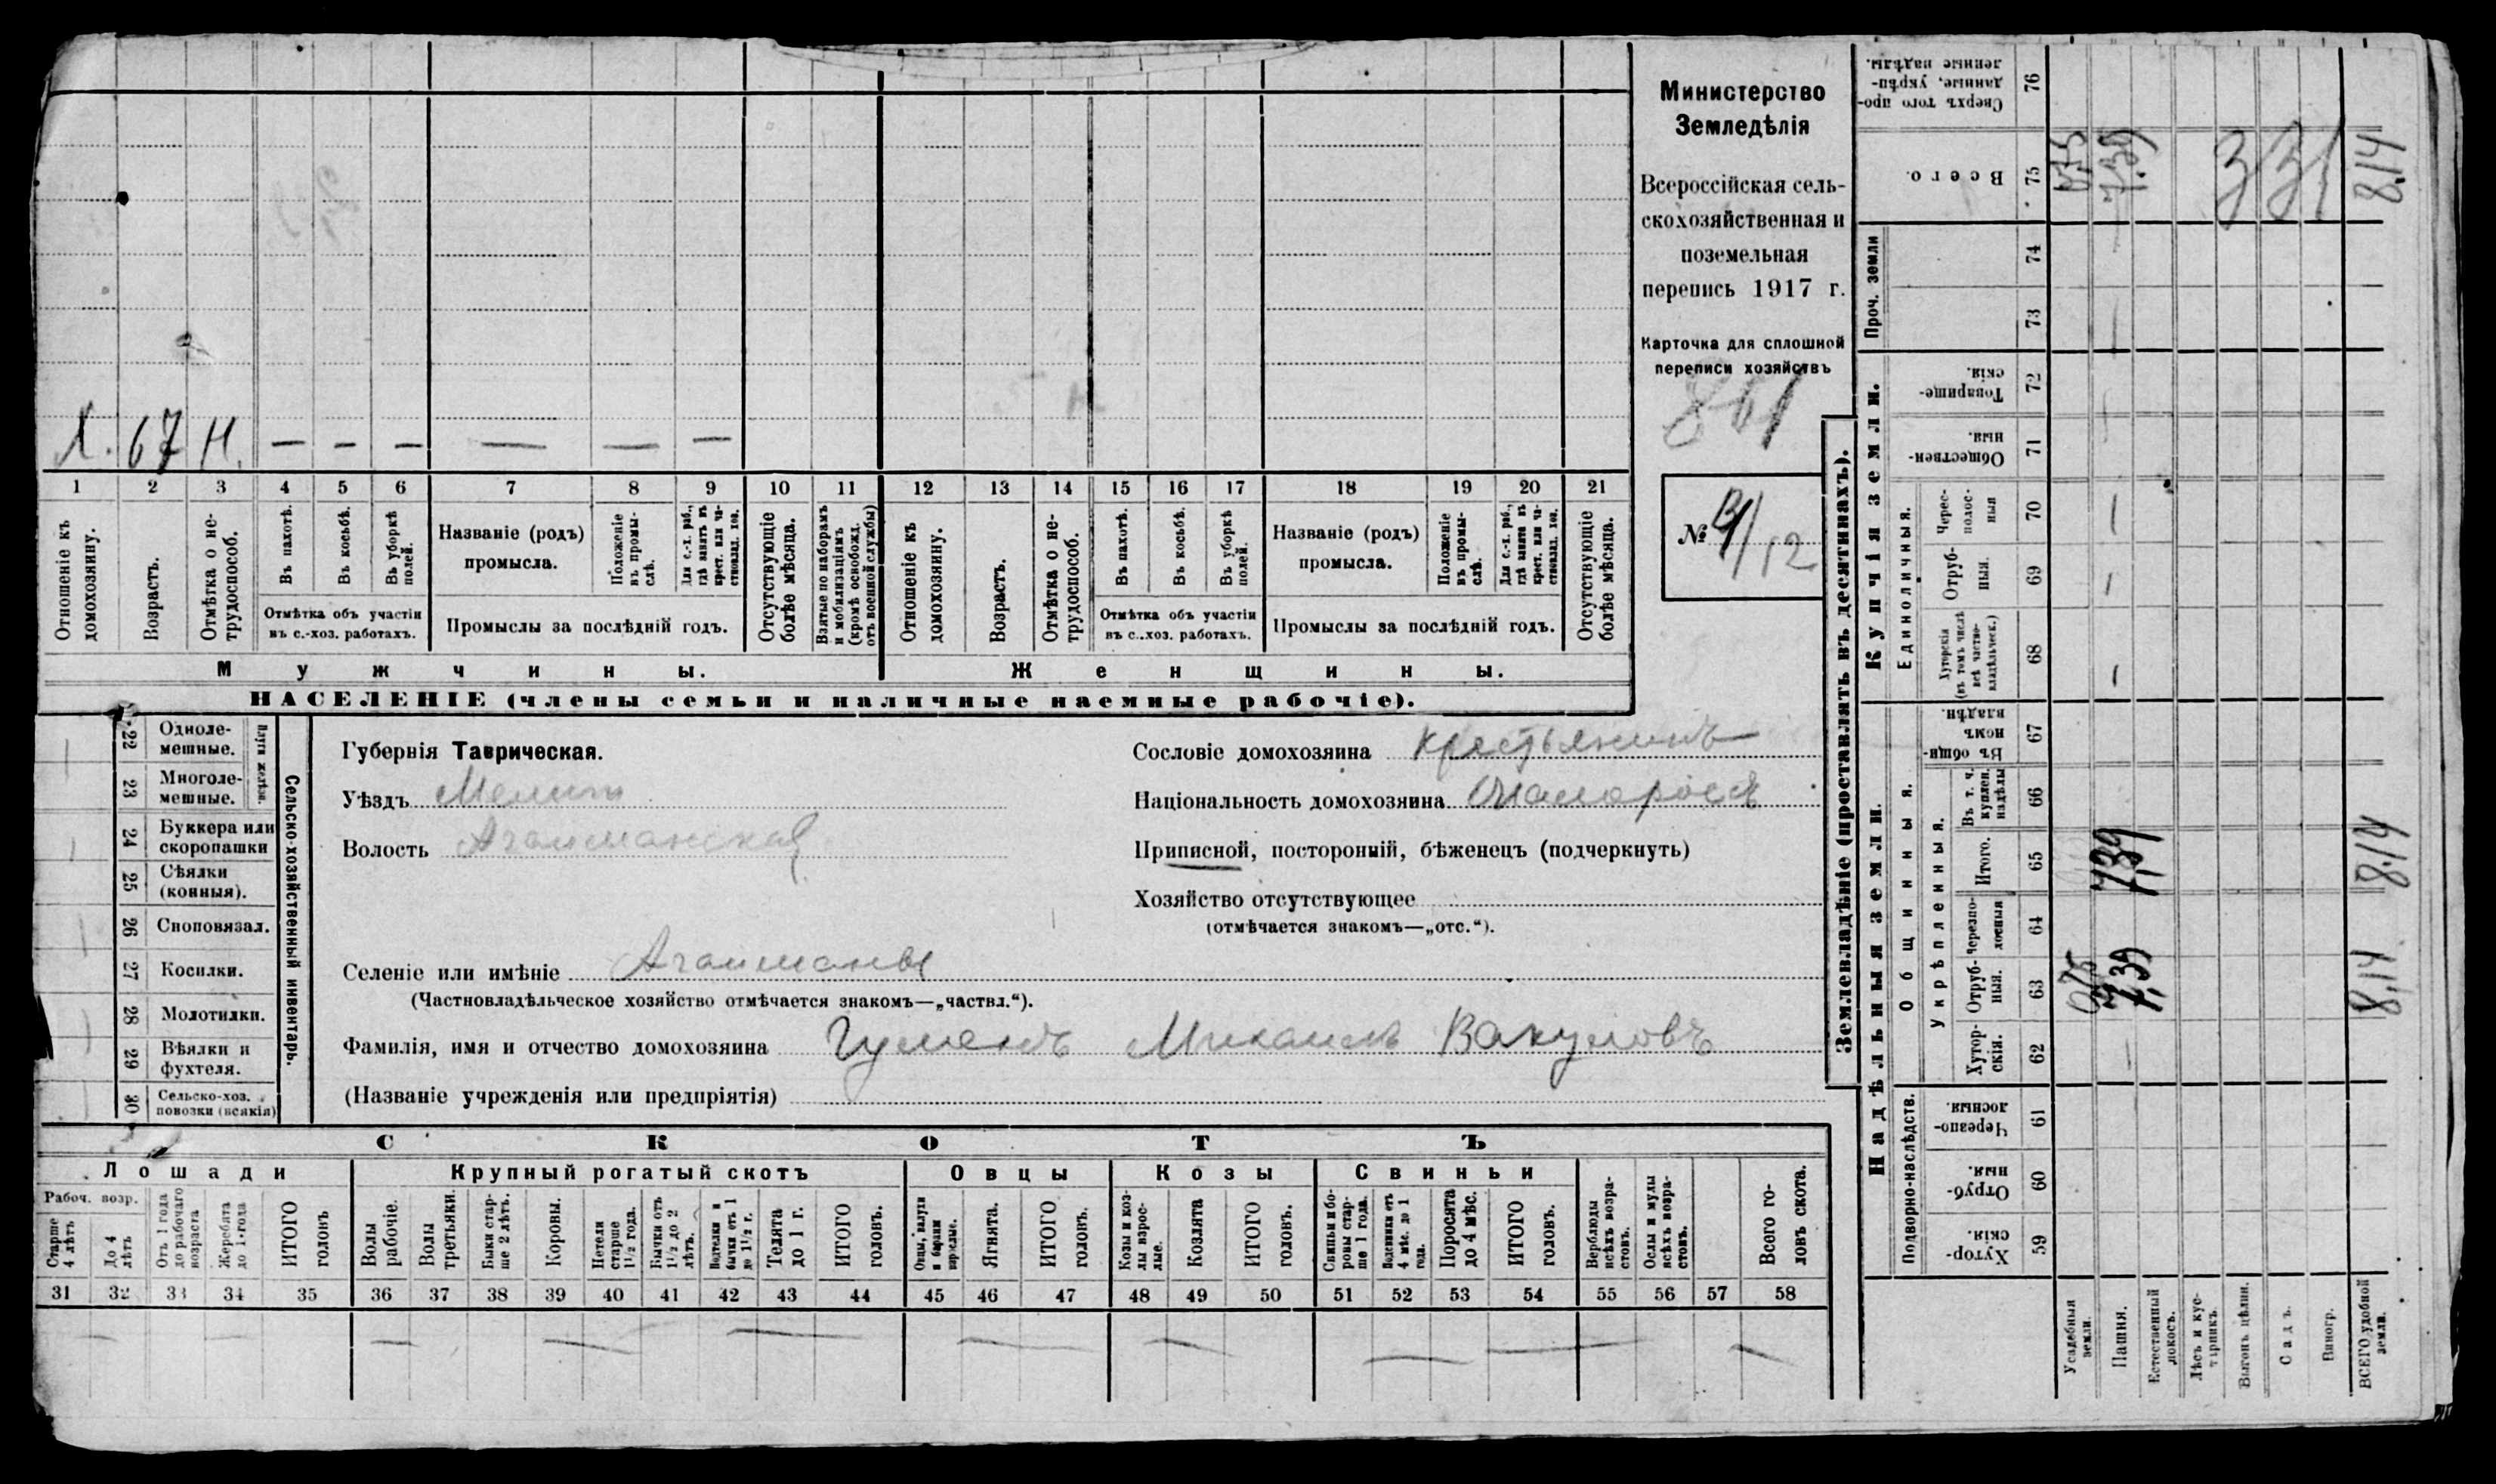 Министерство
Земледѣлія
Всероссійская сель-
скохозяйственная и
поземельная
перепись 1917 г.
Карточка для сплошной
переписи хозяйствъ
861
№ /12
Х. 67 Н. — — — — — —
1 2 3 4 5 6 7 8 9 10 11 12 13 14 15 16 17 18 19 20 21
Отношеніе къ домохозяину.
Возрастъ.
Отмѣтка о не-
трудоспособ.
Въ пахотѣ.
Въ косьбѣ.
Въ уборкѣ
полей.
Отмѣтка объ участіи
въ с.-хоз. работахъ.
Названіе (родъ)
промысла.
Положеніе
въ промы-
слѣ.
Для с.-х. раб.,
гдѣ занятъ въ
крест. или ча-
стновлад. хоз.
Промыслы за послѣдній годъ.
Отсутствующіе
болѣе мѣсяца.
Взятые по наборамъ
и мобилизаціямъ
(кромѣ освобожд.
отъ военной службы)
Отношеніе къ
домохозяину.
Возрастъ.
Отмѣтка о не-
трудоспособ.
Въ пахотѣ.
Въ косьбѣ.
Въ уборкѣ
полей.
Отмѣтка объ участіи
въ с.-хоз. работахъ.
Названіе (родъ)
промысла.
Положеніе
въ промы-
слѣ.
Для с.-х. раб.,
гдѣ занята въ
крест. или ча-
стновлад. хоз.
Промыслы за послѣдній годъ.
Отсутствующіе
болѣе мѣсяца.
Мужчины.
Женщины.
НАСЕЛЕНІЕ (члены семьи и наличные наемные рабочіе).
22 Одноле-
мешные.
23 Многоле-
мешные.
Плуги желѣзн.
24 Буккера или
скоропашки
25 Сѣялки
(конныя).
26 Сноповязал.
27 Косилки.
28 Молотилки.
29 Вѣялки и
фухтеля.
30 Сельско-хоз.
повозки (всякія)
Сельско-хозяйственный инвентарь.
Губернія Таврическая.
Уѣздъ Мелит
Волость Агайманская
Селеніе или имѣніе Агайманы
(Частновладѣльческое хозяйство отмѣчается знакомъ—„частвл.“).
Фамилія, имя и отчество домохозяина Гуменъ Михаилъ Вакуловъ
(Названіе учрежденія или предпріятія)
Сословіе домохозяина крестьянинъ
Національность домохозяина Малоросъ
Приписной, посторонній, бѣженецъ (подчеркнуть)
Хозяйство отсутствующее
(отмѣчается знакомъ—„отс.“).
СКОТЪ
Лошади
Крупный рогатый скотъ
Овцы
Козы
Свиньи
Рабоч. возр.
Старше
4 лѣтъ
До 4
лѣтъ
Отъ 1 года
до рабочаго
возраста
Жеребята
до 1 года
ИТОГО
головъ
Волы
рабочіе.
Волы
третьяки.
Быки стар-
ше 2 лѣтъ.
Коровы.
Нетели
старше
1½ года.
Бычки отъ
1½ до 2
лѣтъ.
Подтелки и
бычки отъ 1
до 1½ г.
Телята
до 1 г.
ИТОГО
головъ.
Овцы, валухи
и бараны
взрослые.
Ягнята.
ИТОГО
головъ.
Козы и коз-
лы взрос-
лые.
Козлята
ИТОГО
головъ.
Свиньи и бо-
ровы стар-
ше 1 года.
Подсвинки отъ
4 мѣс. до 1
года.
Поросята
до 4 мѣс.
ИТОГО
головъ.
Верблюды
всѣхъ возра-
стовъ.
Ослы и мулы
всѣхъ возра-
стовъ.
Всего го-
ловъ скота.
31 32 33 34 35 36 37 38 39 40 41 42 43 44 45 46 47 48 49 50 51 52 53 54 55 56 57 58
Землевладѣніе (проставлять въ десятинахъ).
Надѣльныя земли.
Купчія земли.
Проч. земли
Подворно-наслѣдств.
Общинныя.
Укрѣпленныя.
Единоличныя.
Хутор-
скія. 59
Отруб-
ныя. 60
Черезпо-
лосныя. 61
Хутор-
скія. 62
Отруб-
ныя. 63
Черезпо-
лосныя 64
Итого. 65
Въ т. ч.
куплен.
надѣлы 66
Въ общин-
номъ
владѣн. 67
Хуторскія
(въ томъ числѣ
всѣ частно-
владѣльческ.) 68
Отруб-
ныя. 69
Черес-
полос-
ныя 70
Обществен-
ныя. 71
Товарище-
скія. 72
73
74
Всего. 75
Сверхъ того про-
данные, укрѣп-
ленные надѣлы. 76
Усадебныя
земли.
Пашня.
Естественный
покосъ.
Лѣсъ и кус-
тарникъ.
Выгонъ цѣлин.
Садъ.
Виногр.
ВСЕГО удобной
земли.
0,75
7,39
8,14
7,39
8,14
7,39
331
8,14